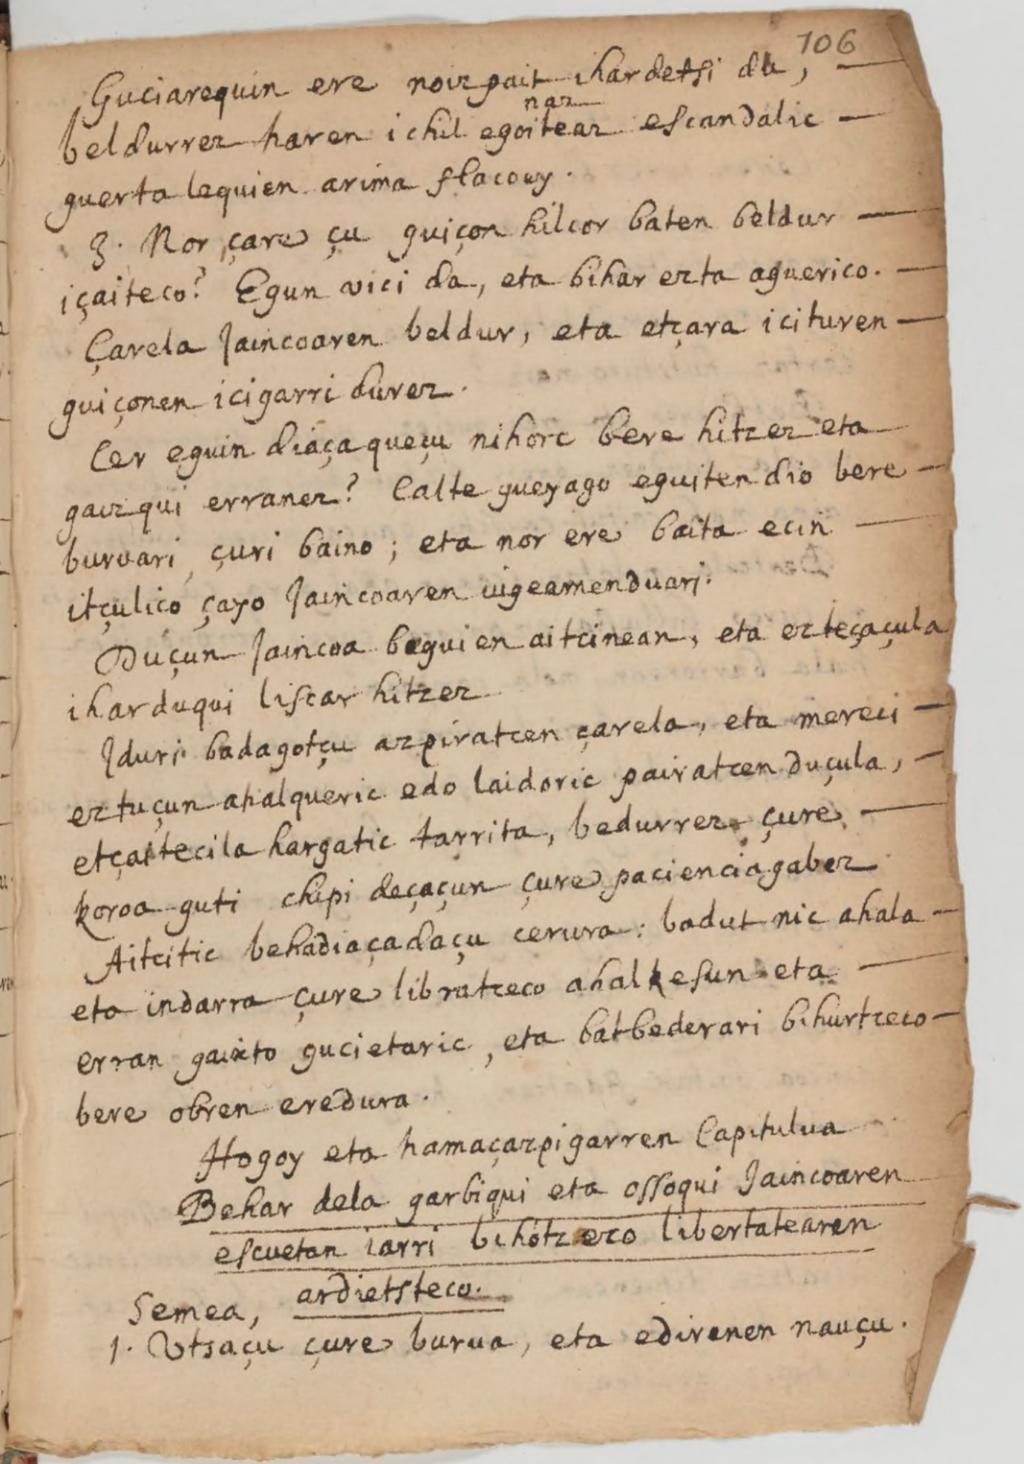 106
Guciarequin ere noizpait ihardetsi du, —
beldurrez haren ichil egoitear escandalic —
naz
guerta lequien arima flacouy.
3. Nor çare çu guiçon hilcor baten beldur —
içaiteco? Egun vici da, eta bihar ezta aguerico. —
Çarela Jaincoaren beldur, eta etçara icituren —
guiçonen icigarri durez.
Cer eguin diaçaqueçu nihorc bere hitzez eta
gaizqui erranez? Calte gueyago eguiten dio bere —
buruari, çuri baino; eta nor ere baita ecin —
itçulico çayo Jaincoaren uigeamenduari.
Duçun Jaincoa beguien aitcinean, eta ezteçaçula
iharduqui liscar hitzez
Iduri badagotçu azpiratcen çarela, eta mereci —
eztuçun ahalqueric edo laidoric pairatcen duçula, —
etçaitecila hargatic tarrita, bedurrez çure —
koroa guti chipi deçaçun çure pacienciagabez
Aitcitic behadiaçadaçu cerura: badut nic ahala —
eta indarra çure libratzeco ahalkesun eta —
erran gaixto gucietaric, eta batbederari bihurtzeco —
bere obren eredura.
Hogoy eta hamaçazpigarren Capitulua
Behar dela garbiqui eta ossoqui Jaincoaren
escuetan iarri bihotzezco libertatearen
ardietsteco.
Semea,
1. Utsaçu çure burua, eta edirenen nauçu.